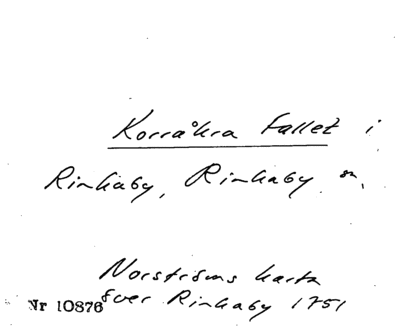 Korråkra Fallet i
Rinkaby, Rinkaby sn,
Norströms karta
över Rinkaby 1751
Nr 10876